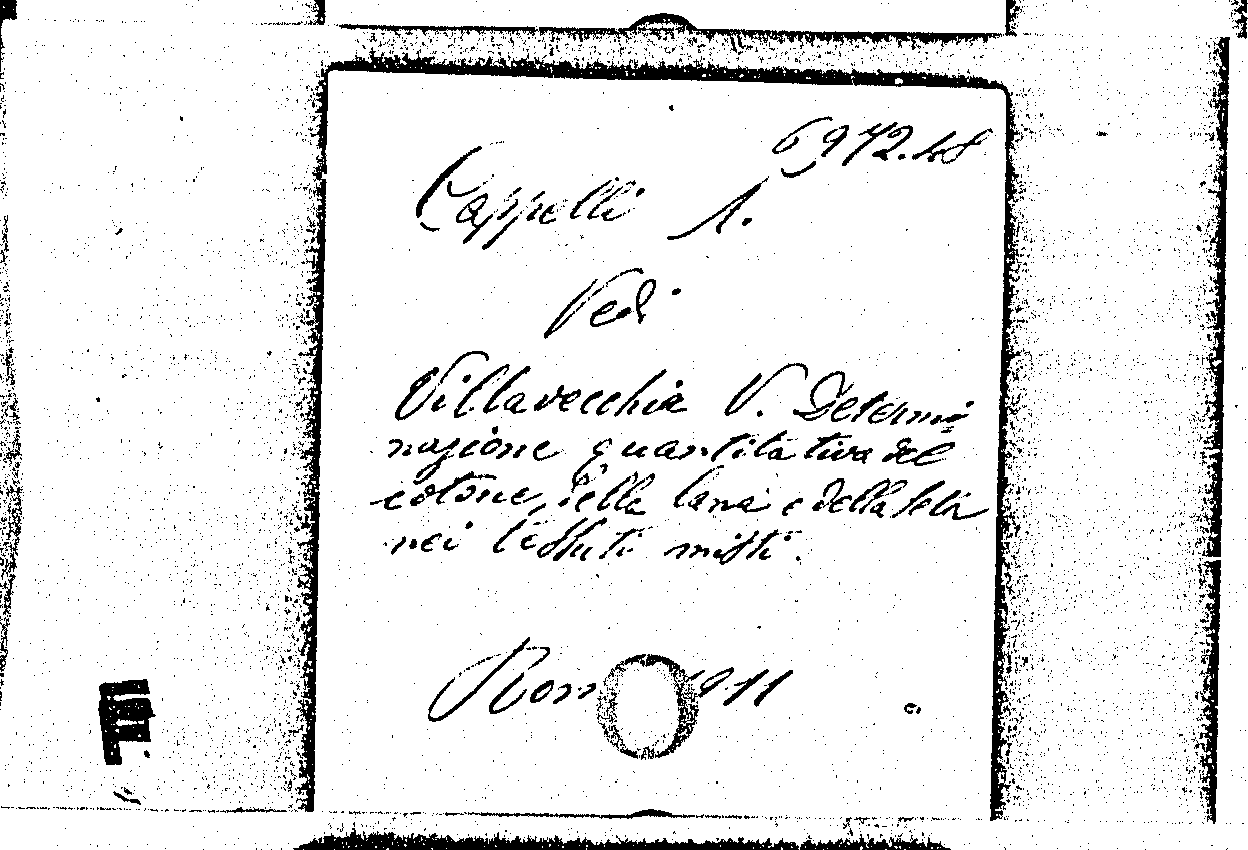 6972.48
Cappelli A.
Vedi
Villavecchia V. Determi=
nazione quantitativa del
cotone, della lana e della seta
nei tessuti misti.
Roma 1911